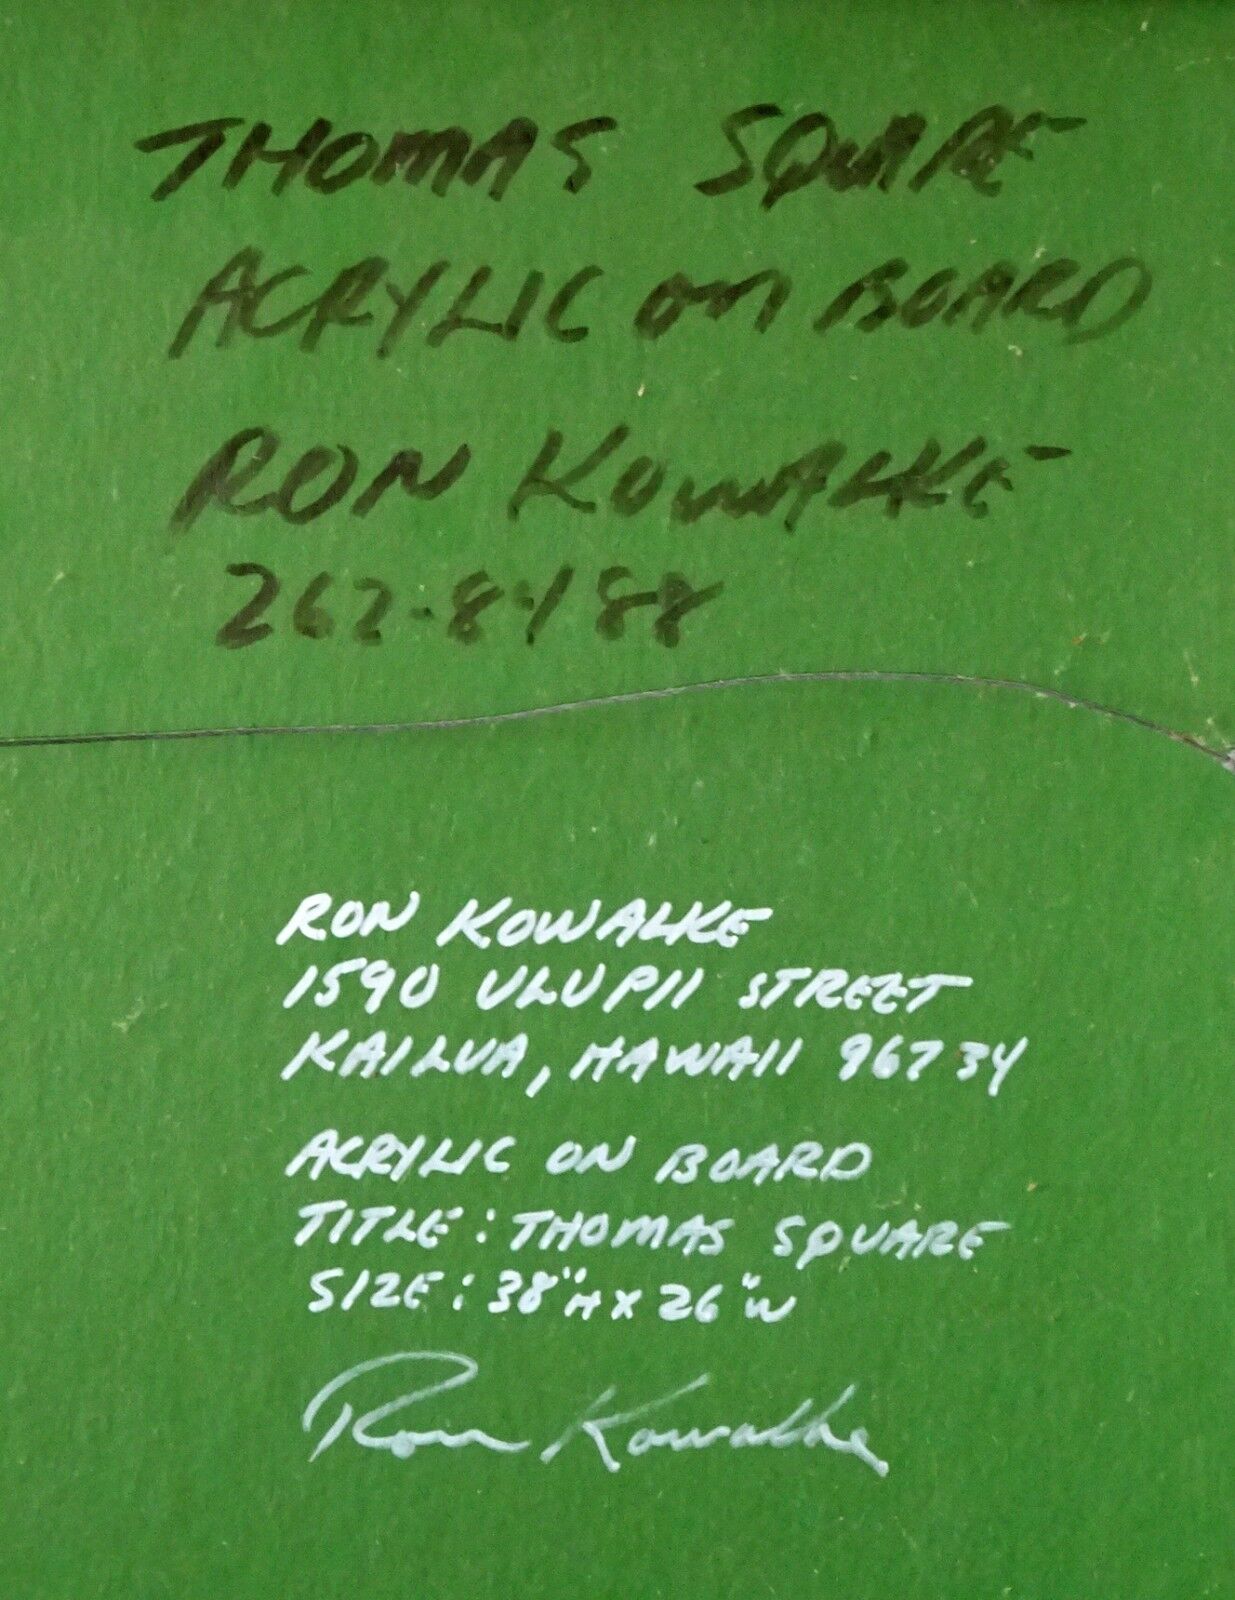 THOMAS SQUARE
ACRYLIC ON BOARD
RON KOWALKE
262-8188
RON KOWALKE
1590 ULUPII STREET
KAILUA, HAWAII 96734
ACRYLIC ON BOARD
TITLE: THOMAS SQUARE
SIZE: 38"H X 26"W
Ron Kowalke